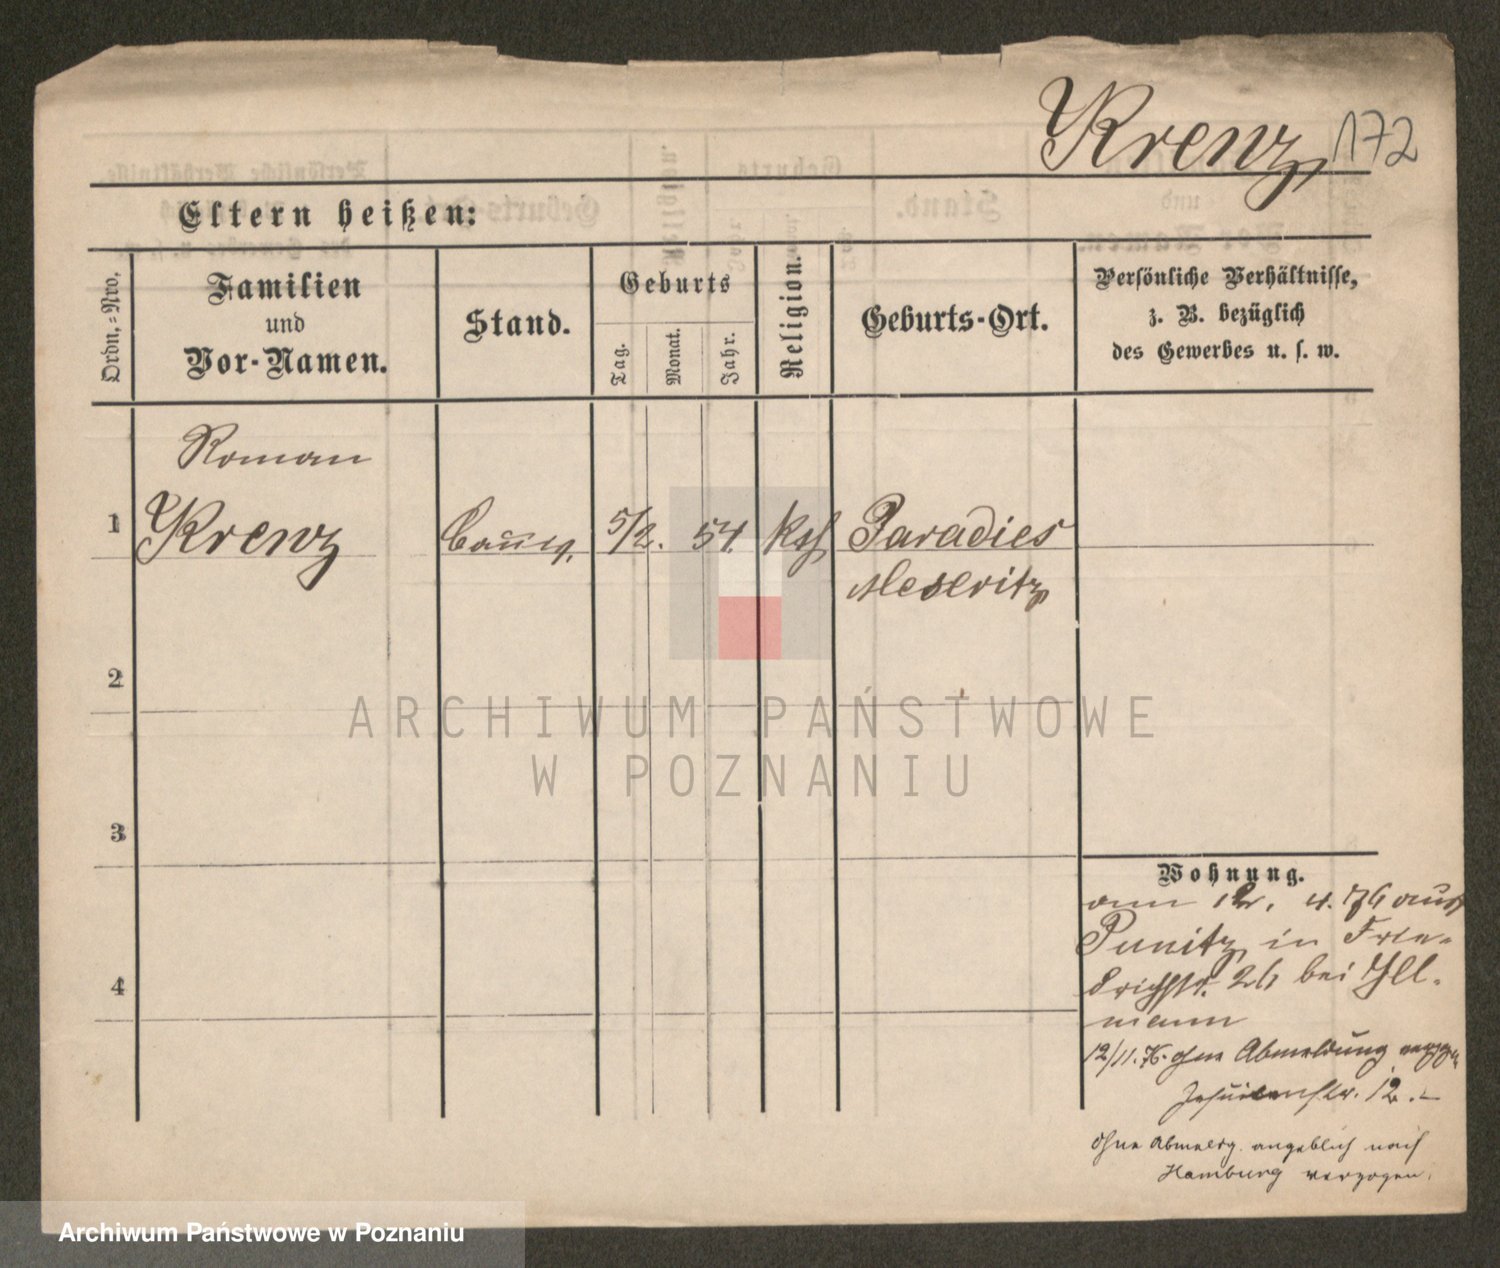 Krenz, 172
Eltern heißen:
Ordn.-Nro.
Familien
und
Vor-Namen.
Stand.
Geburts
Tag.
Monat.
Jahr.
Religion.
Geburts-Ort.
Persönliche Verhältnisse,
z. B. bezüglich
des Gewerbes u. s. w.
Roman
1 Krenz 5/2. 54. kth Paradies
Meseritz
2
3
4
Wohnung.
12. 4. 76 aus
Punitz in Frie-
drichstr. 26 bei Ill-
mann
12/11. 76. ohne Abmeldung
Jesuitenstr. 12.-
ohne Abmeldg. angeblich nach
Hamburg verzogen.
ARCHIWUM PAŃSTWOWE
W POZNANIU
Archiwum Państwowe w Poznaniu